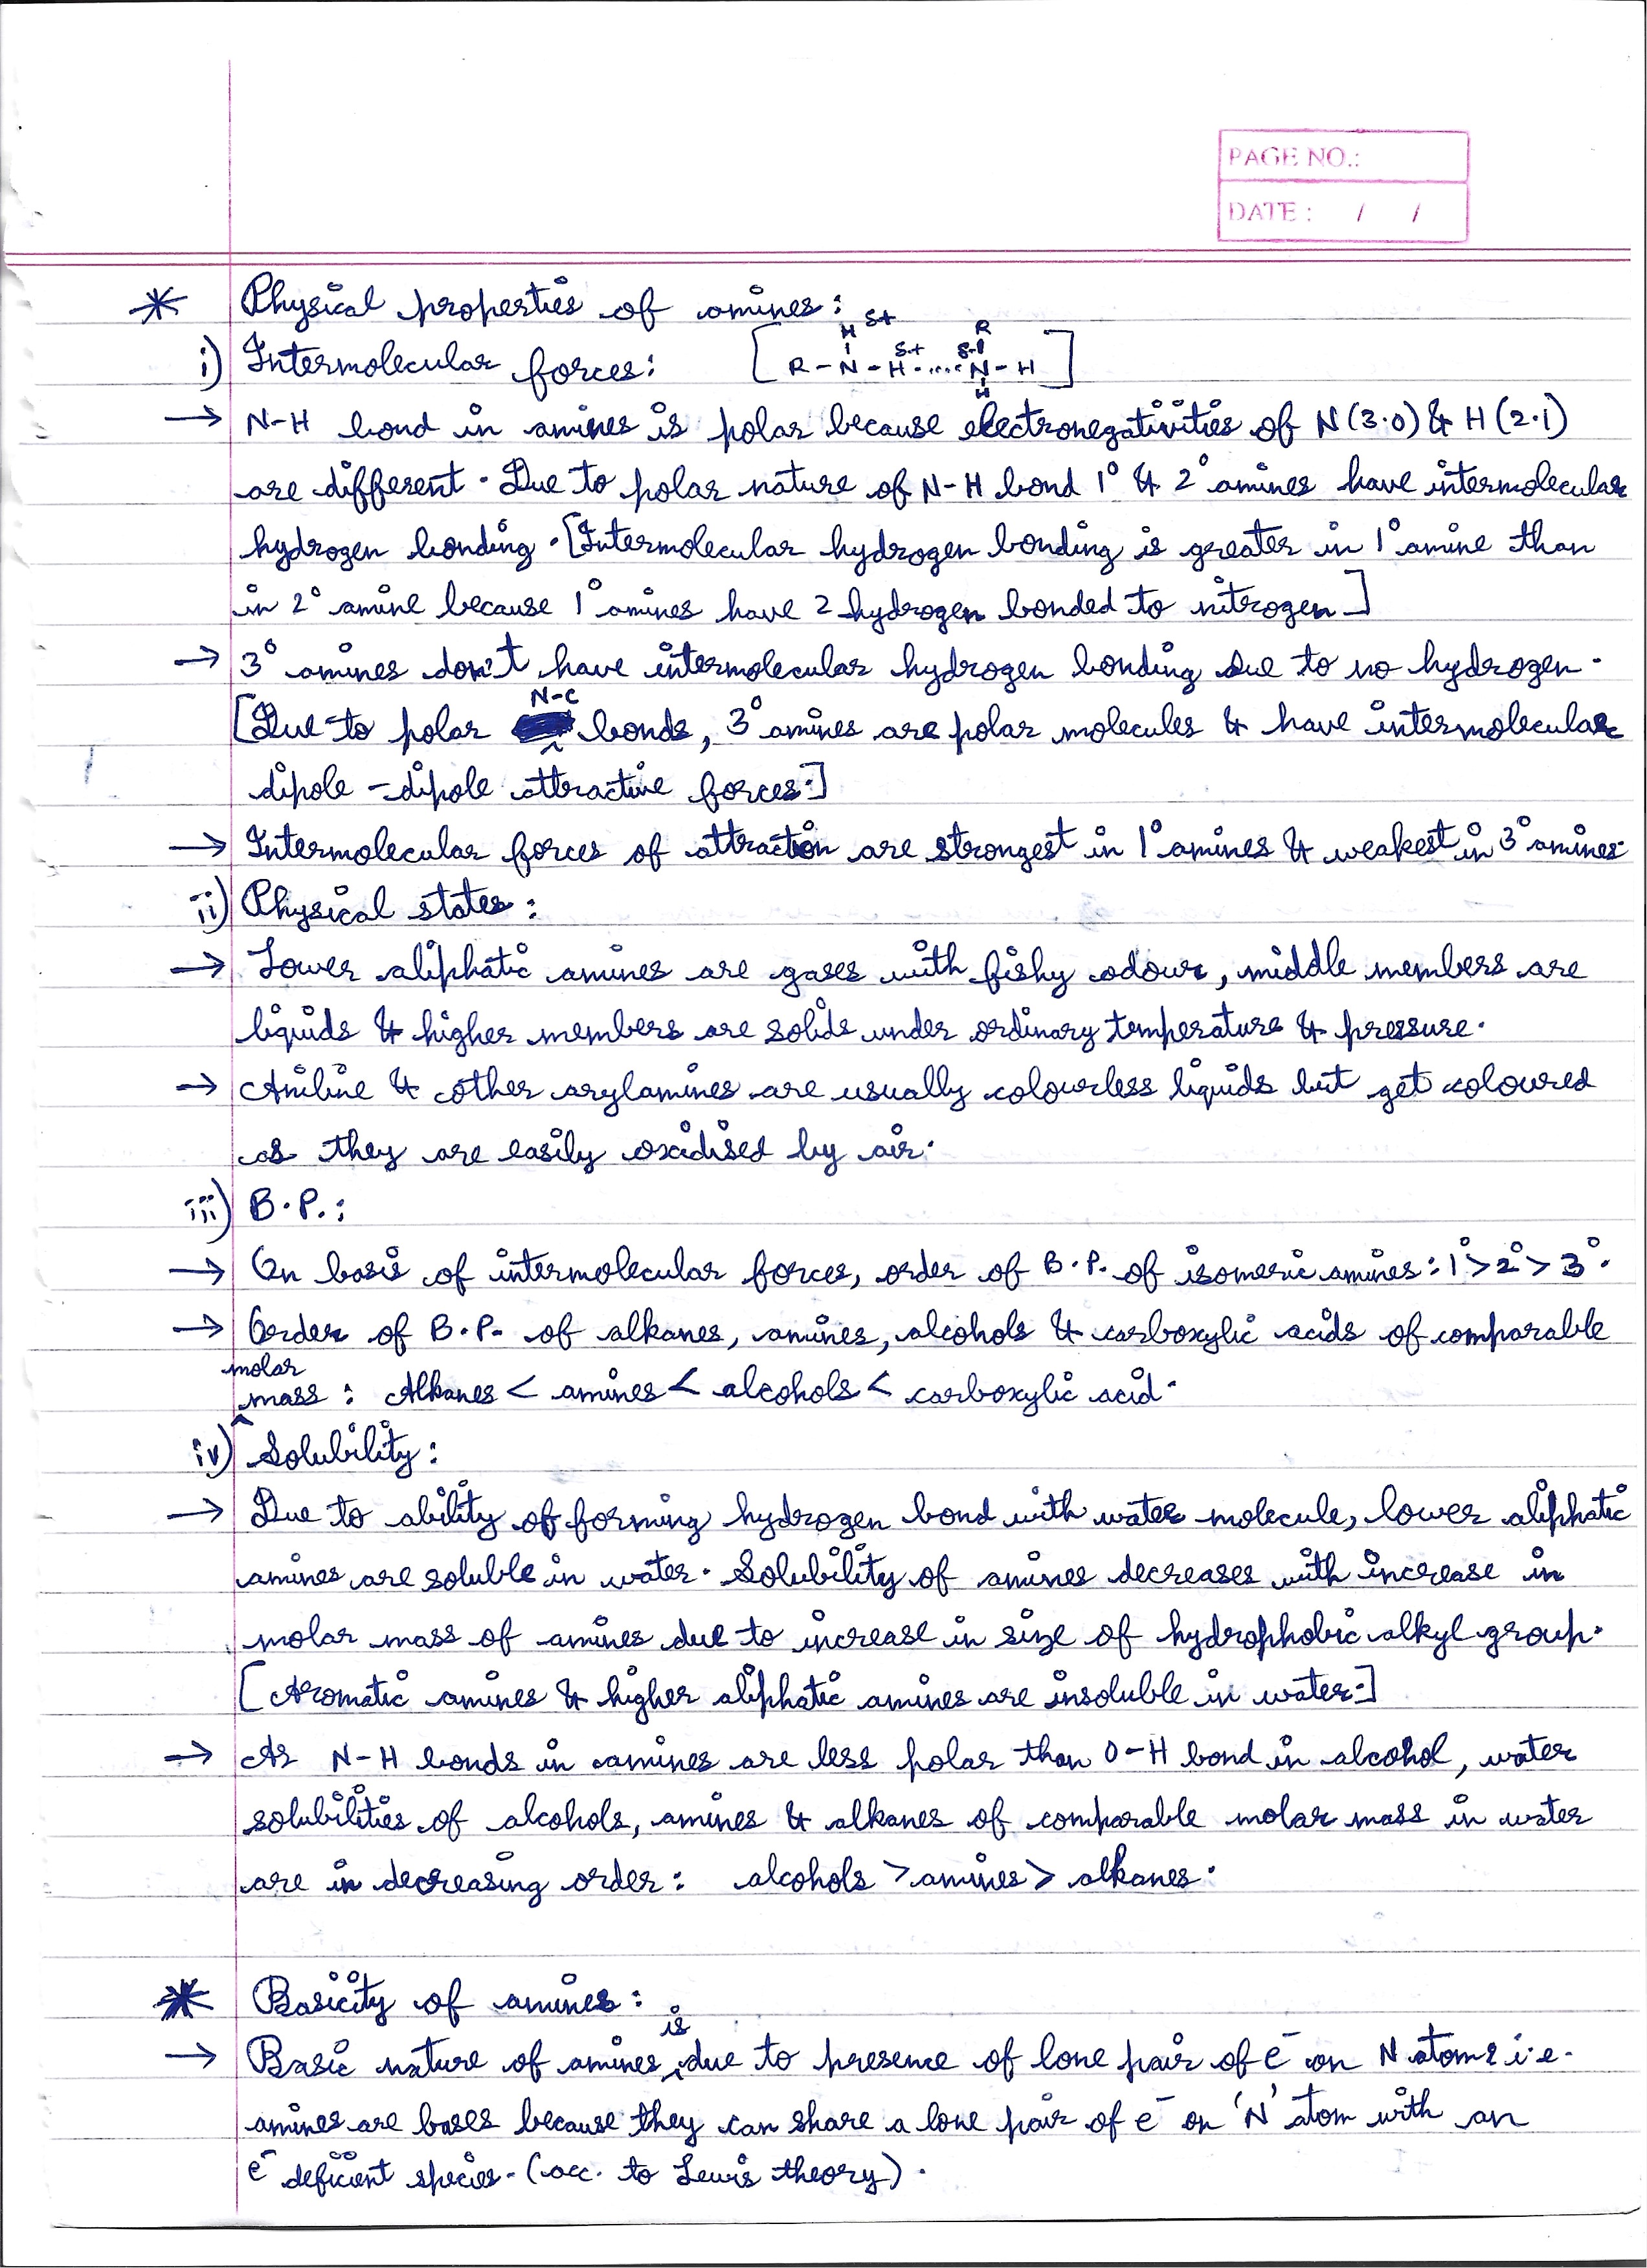 PAGE NO.:
DATE : / /
* Physical properties of amines:
H δ+ R
i) Intermolecular forces: [R-N-H.....N-H]
δ+ δ-
H
→ N-H bond in amines is polar because electronegativities of N(3.0) & H(2.1)
are different. Due to polar nature of N-H bond 1° & 2° amines have intermolecular
hydrogen bonding. [Intermolecular hydrogen bonding is greater in 1° amine than
in 2° amine because 1° amines have 2 hydrogen bonded to nitrogen]
→ 3° amines don't have intermolecular hydrogen bonding due to no hydrogen.
[Due to polar N-C bonds, 3° amines are polar molecules & have intermolecular
dipole-dipole attractive forces.]
→ Intermolecular forces of attraction are strongest in 1° amines & weakest in 3° amines.
ii) Physical states:
→ Lower aliphatic amines are gases with fishy odour, middle members are
liquids & higher members are solids under ordinary temperature & pressure.
→ Aniline & other arylamines are usually colourless liquids but get coloured
as they are easily oxidised by air.
iii) B.P.:
→ On basis of intermolecular forces, order of B.P. of isomeric amines: 1°>2°>3°.
→ Order of B.P. of alkanes, amines, alcohols & carboxylic acids of comparable
molar mass: Alkanes < amines < alcohols < carboxylic acid.
iv) Solubility:
→ Due to ability of forming hydrogen bond with water molecule, lower aliphatic
amines are soluble in water. Solubility of amines decreases with increase in
molar mass of amines due to increase in size of hydrophobic alkyl group.
[Aromatic amines & higher aliphatic amines are insoluble in water.]
→ As N-H bonds in amines are less polar than O-H bond in alcohol, water
solubilities of alcohols, amines & alkanes of comparable molar mass in water
are in decreasing order: alcohols > amines > alkanes.
* Basicity of amines:
→ Basic nature of amines is due to presence of lone pair of e⁻ on N atom i.e.
amines are bases because they can share a lone pair of e⁻ on 'N' atom with an
e⁻ deficient species. (acc. to Lewis theory).